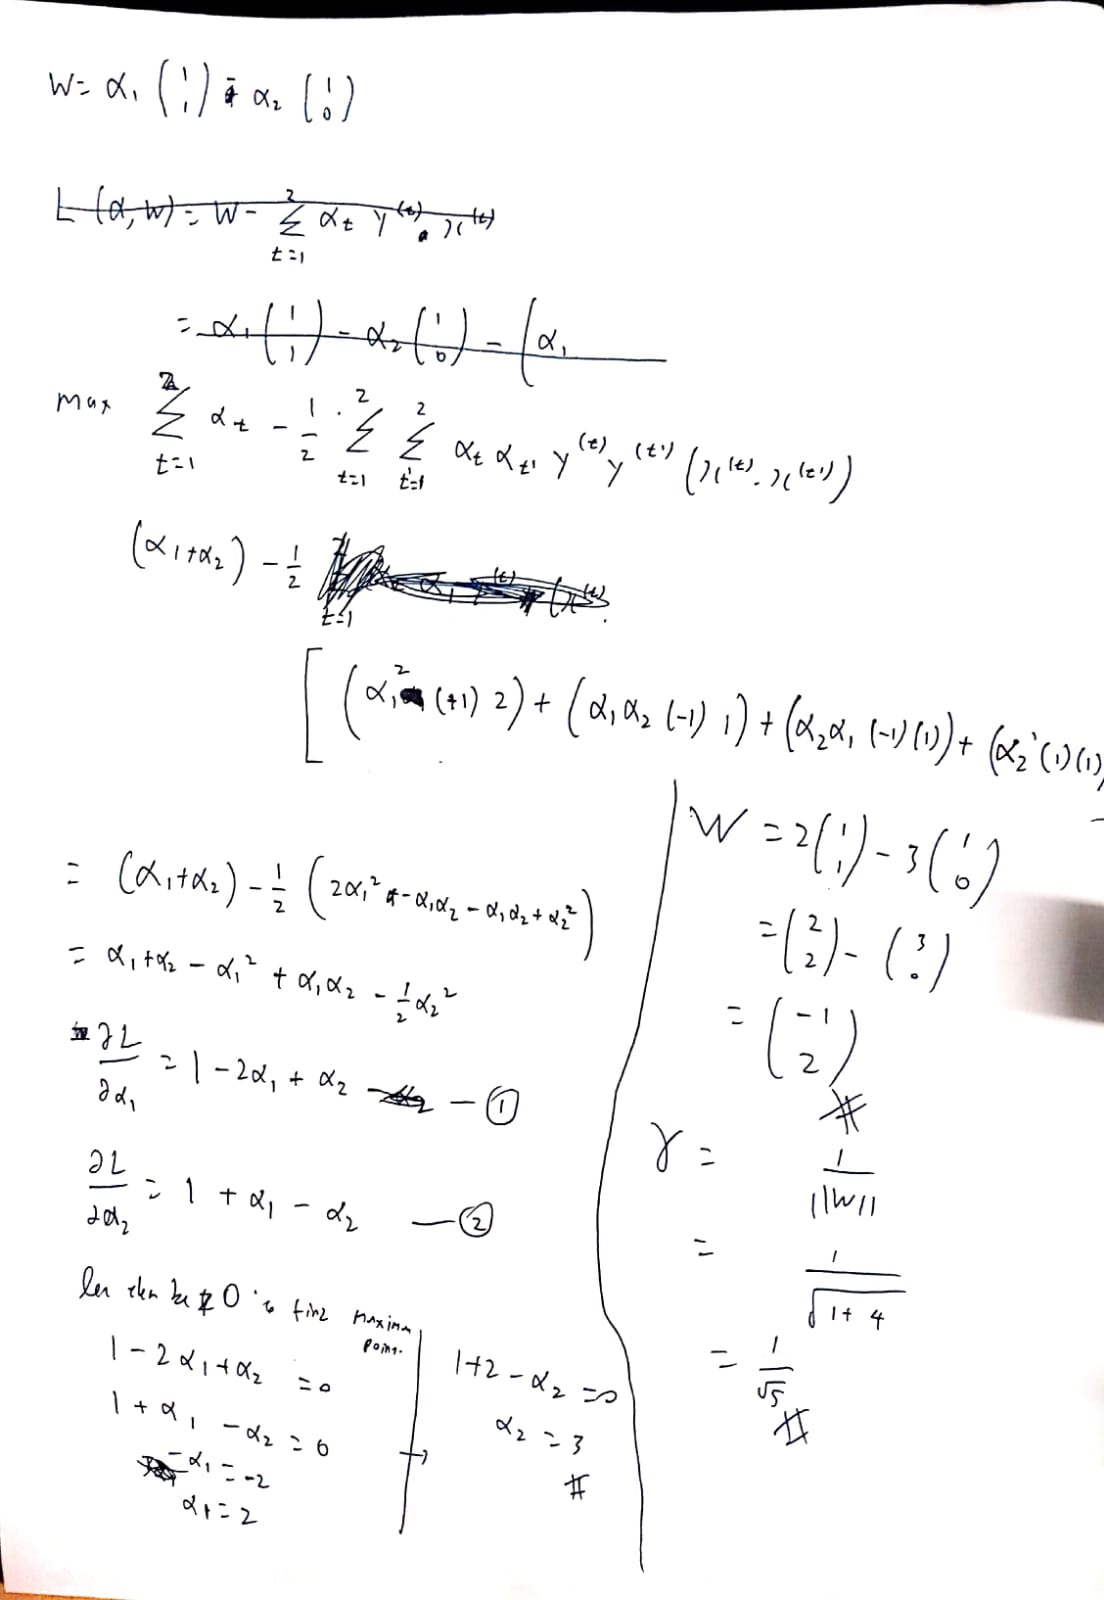 W = α₁ (1 1) - α₂ (1 0)
L (α, w) = W - Σ_{t=1}^{2} α_t y^(t) · x^(t)
= α₁ (1 1) - α₂ (1 0) - (α₁
max Σ_{t=1}^{2} α_t - 1/2 · Σ_{t=1}^{2} Σ_{t'=1}^{2} α_t α_t' y^(t) y^(t') (x^(t) · x^(t'))
(α₁+α₂) - 1/2
t=1
[ (α₁² (+1) 2) + (α₁α₂ (-1) 1) + (α₂α₁ (-1)(1)) + (α₂² (1)(1)
= (α₁+α₂) - 1/2 (2α₁² - α₁α₂ - α₁α₂ + α₂²)
= α₁+α₂ - α₁² + α₁α₂ - 1/2 α₂²
∂L/∂α₁ = 1 - 2α₁ + α₂ — ①
∂L/∂α₂ = 1 + α₁ - α₂ — ②
let them be 0 to find maxima point.
1 - 2α₁ + α₂ = 0
1 + α₁ - α₂ = 0
-α₁ = -2
α₁ = 2
→
1+2 - α₂ = 0
α₂ = 3
#
W = 2(1 1) - 3(1 0)
= (2 2) - (3 0)
= (-1 2)
#
γ = 1/||W||
= 1/√(1+4)
= 1/√5
#